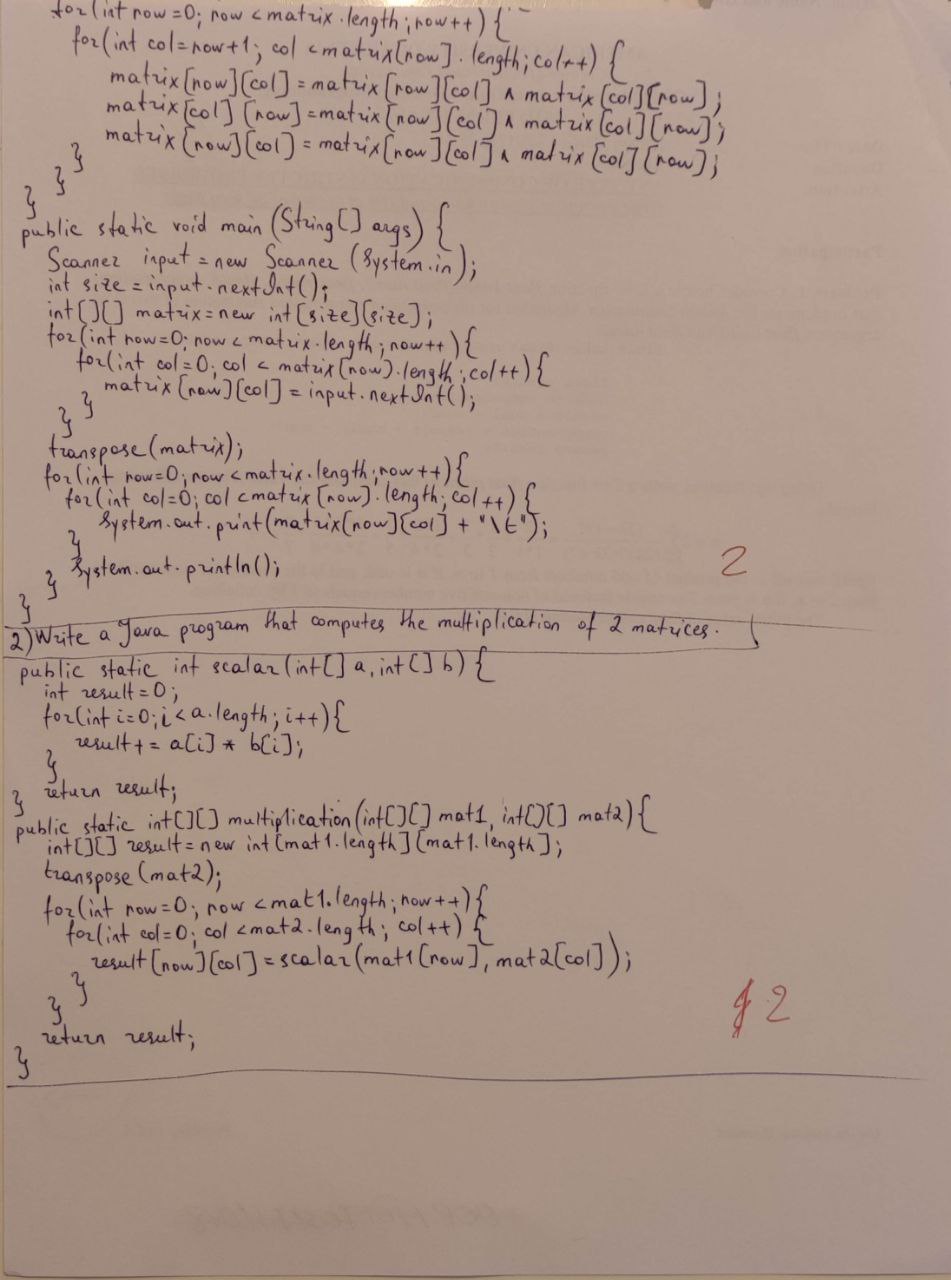 for(int row=0; row<matrix.length;row++){
for(int col=row+1; col<matrix[row].length;col++){
matrix[row][col]=matrix[row][col] ^ matrix[col][row];
matrix[col][row]=matrix[row][col] ^ matrix[col][row];
matrix[row][col]=matrix[row][col] ^ matrix[col][row];
}
}
}
public static void main(String[] args) {
Scanner input = new Scanner (System.in);
int size=input.nextInt();
int[][] matrix=new int[size][size];
for(int row=0;row<matrix.length;row++){
for(int col=0;col<matrix[row].length;col++){
matrix[row][col]=input.nextInt();
}
}
transpose(matrix);
for(int row=0;row<matrix.length;row++){
for(int col=0;col<matrix[row].length;col++){
System.out.print(matrix[row][col] + "\t");
}
System.out.println();
}
}
2
2)Write a Java program that computes the multiplication of 2 matrices.
public static int scalar(int[] a,int[] b) {
int result=0;
for(int i=0;i<a.length;i++){
result+= a[i] * b[i];
}
return result;
}
public static int[][] multiplication(int[][] mat1, int[][] mat2){
int[][] result=new int[mat1.length][mat1.length];
transpose(mat2);
for(int row=0; row<mat1.length;row++){
for(int col=0;col<mat2.length; col++) {
result[row][col]=scalar(mat1[row],mat2[col]);
}
}
return result;
}
2